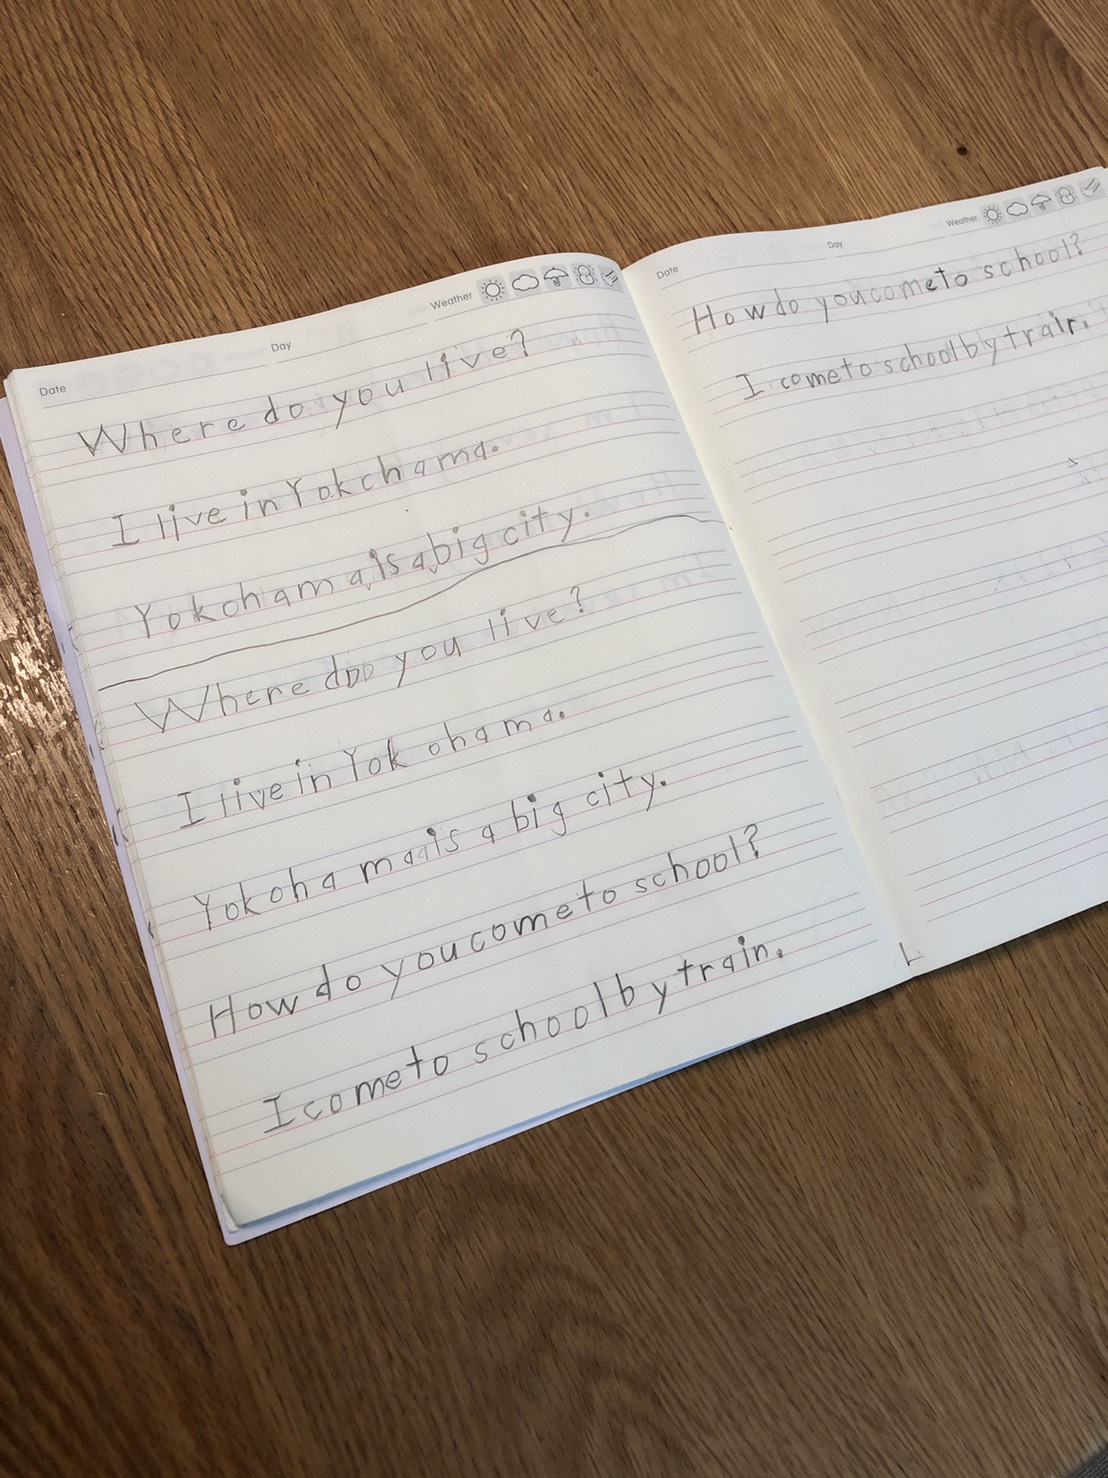 Date Day Weather
Where do you live?
I live in Yokchama.
Yokohama is a big city.
Where doo you live?
I live in Yokohama.
Yokohamaais a big city.
How do you come to school?
I come to school by train.
Date Day Weather
How do you come to school?
I come to school by train.